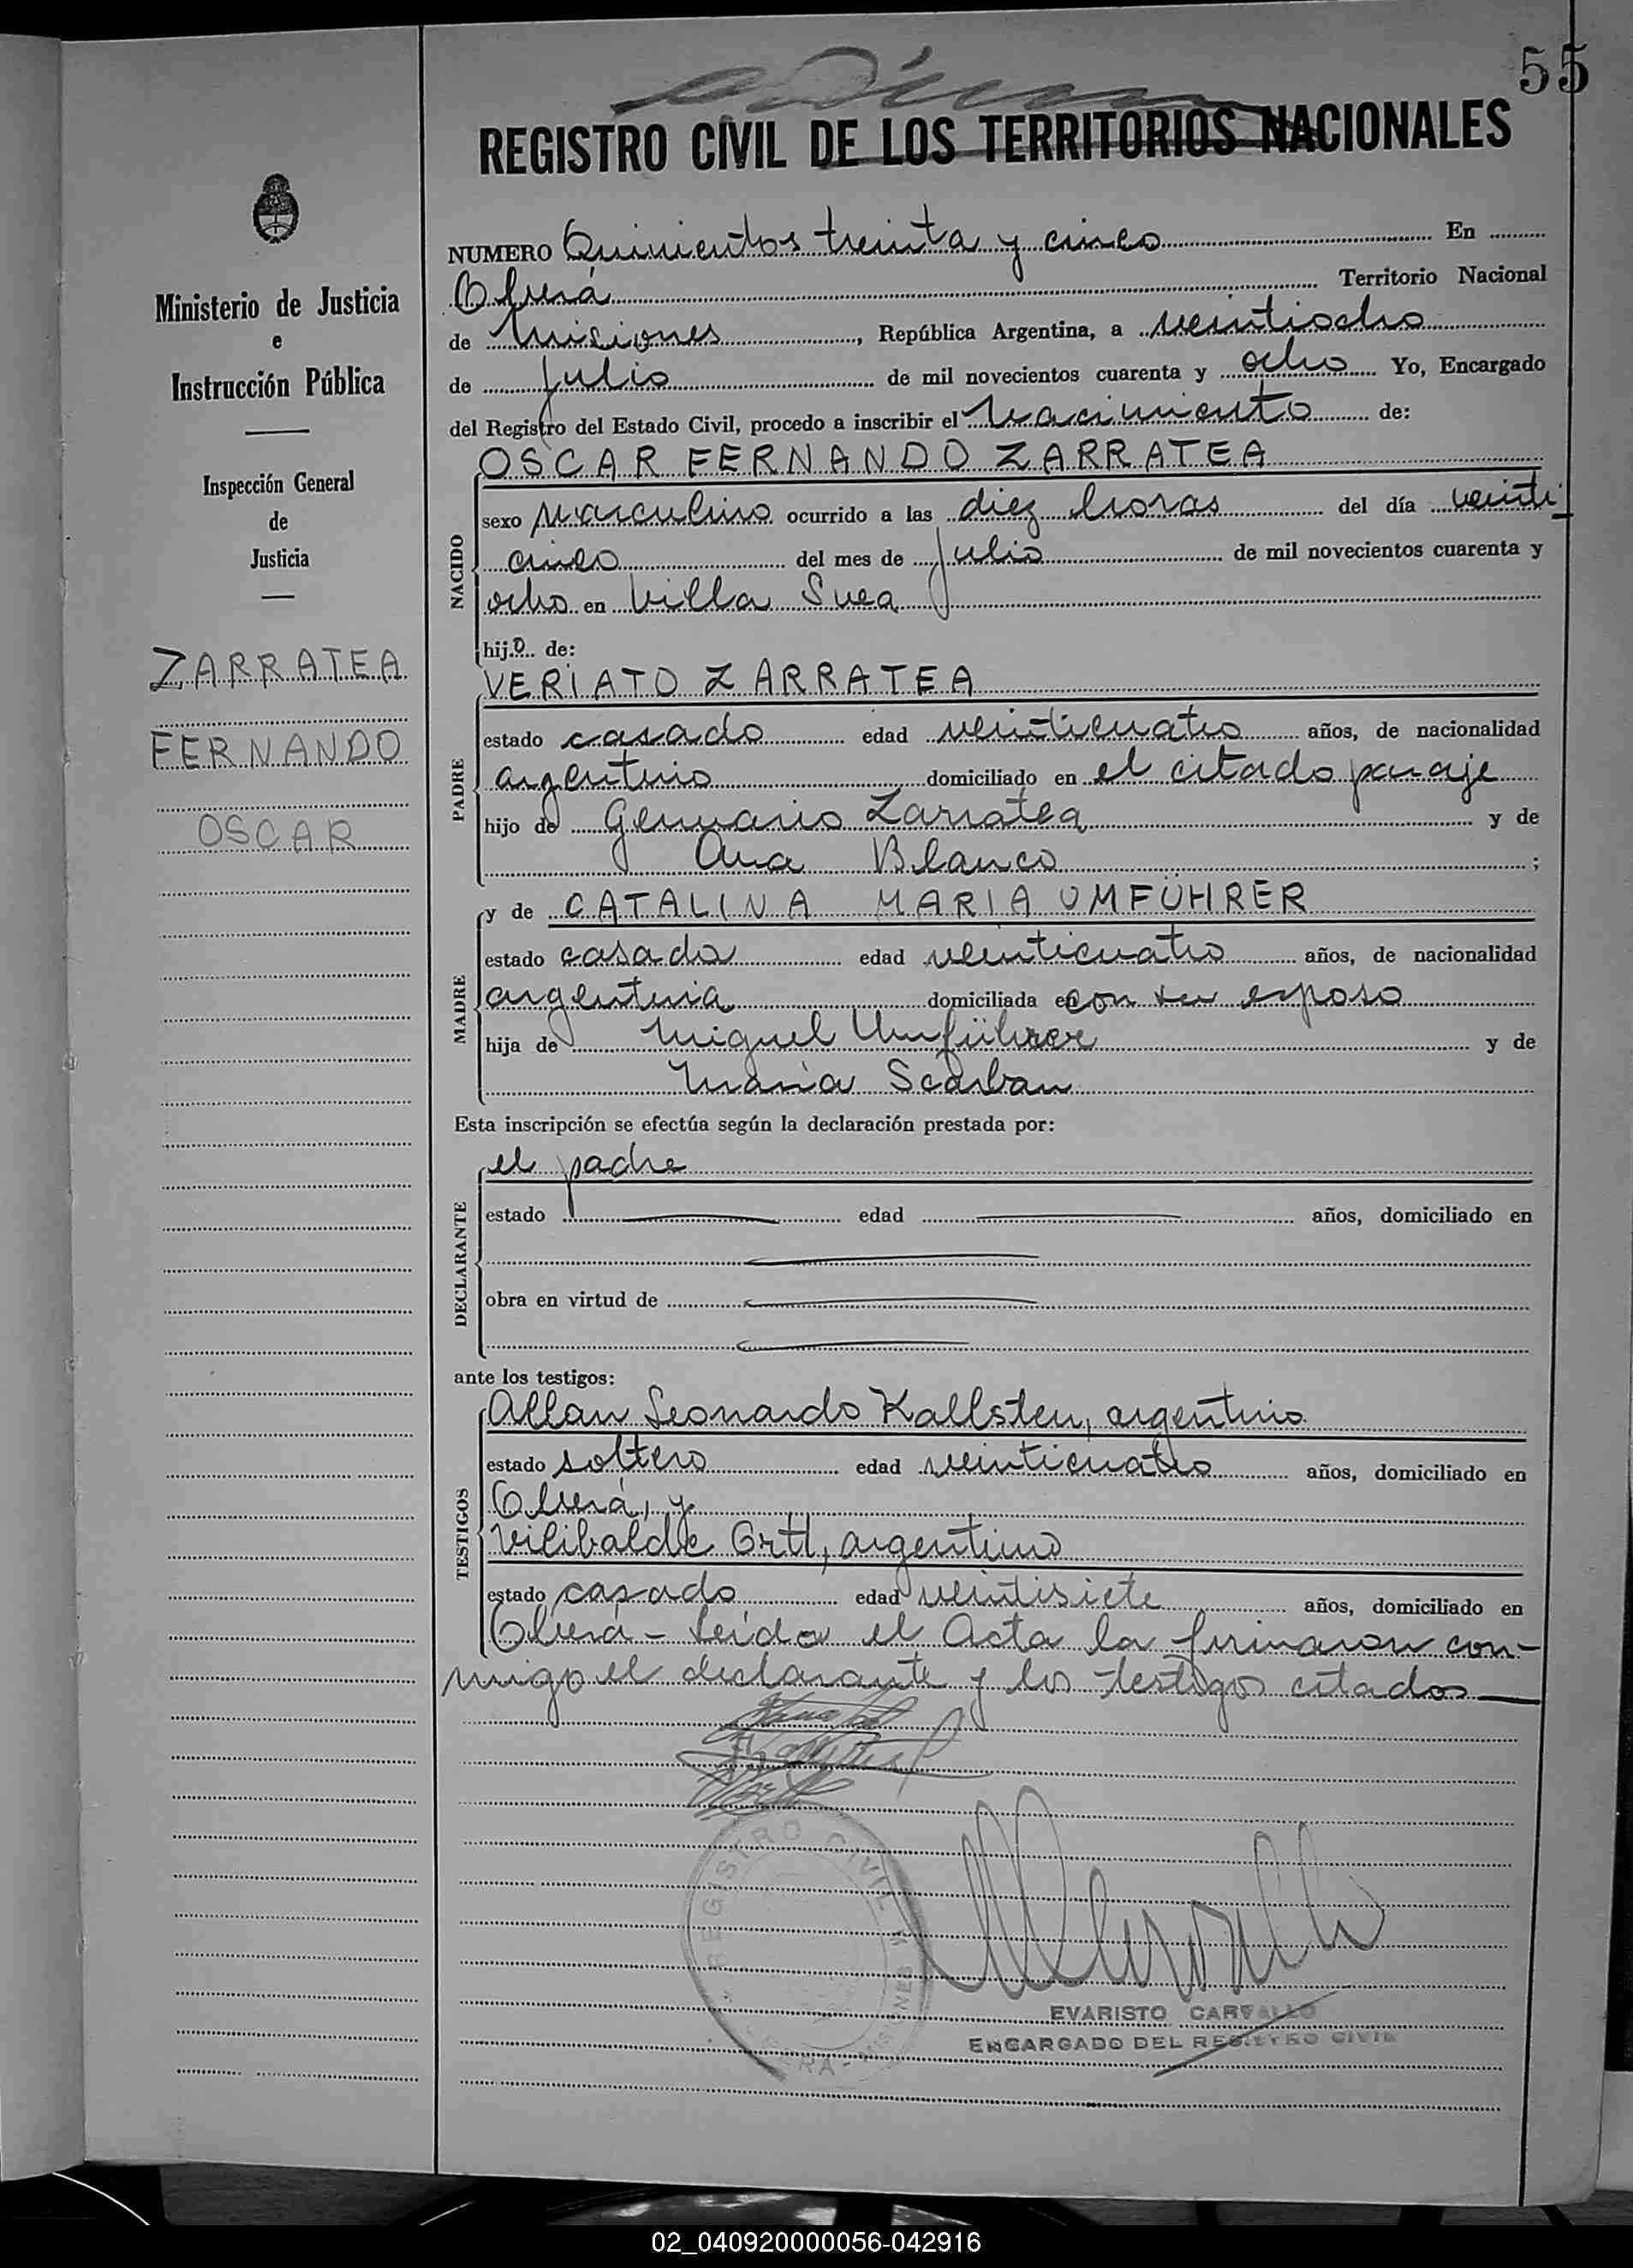 55
REGISTRO CIVIL DE LOS TERRITORIOS NACIONALES
Ministerio de Justicia
e
Instrucción Pública
Inspección General
de
Justicia
ZARRATEA
FERNANDO
OSCAR
NUMERO Quinientos treinta y cinco En
Oberá Territorio Nacional
de Misiones, República Argentina, a veintiocho
de julio de mil novecientos cuarenta y ocho Yo, Encargado
del Registro del Estado Civil, procedo a inscribir el Nacimiento de:
NACIDO
OSCAR FERNANDO ZARRATEA
sexo masculino ocurrido a las diez horas del día veinti
cinco del mes de julio de mil novecientos cuarenta y
ocho en Villa Svea
hijo de:
PADRE
VERIATO ZARRATEA
estado casado edad veinticuatro años, de nacionalidad
argentino domiciliado en el citado paraje
hijo de Genuario Zarratea y de
Ana Blanco ;
MADRE
y de CATALINA MARIA UMFÜHRER
estado casada edad veinticuatro años, de nacionalidad
argentina domiciliada en con su esposo
hija de Miguel Umführer y de
María Scarban
Esta inscripción se efectúa según la declaración prestada por:
DECLARANTE
el padre
estado edad años, domiciliado en
obra en virtud de
ante los testigos:
TESTIGOS
Allan Leonardo Kallsten, argentino
estado soltero edad veinticuatro años, domiciliado en
Oberá, y
Vilibalde Ortl, argentino
estado casado edad veintisiete años, domiciliado en
Oberá - Leída el Acta la firmaron con-
migo el declarante y los testigos citados
REGISTRO CIVIL
EVARISTO CARVALLO
ENCARGADO DEL REGISTRO CIVIL
02_040920000056-042916